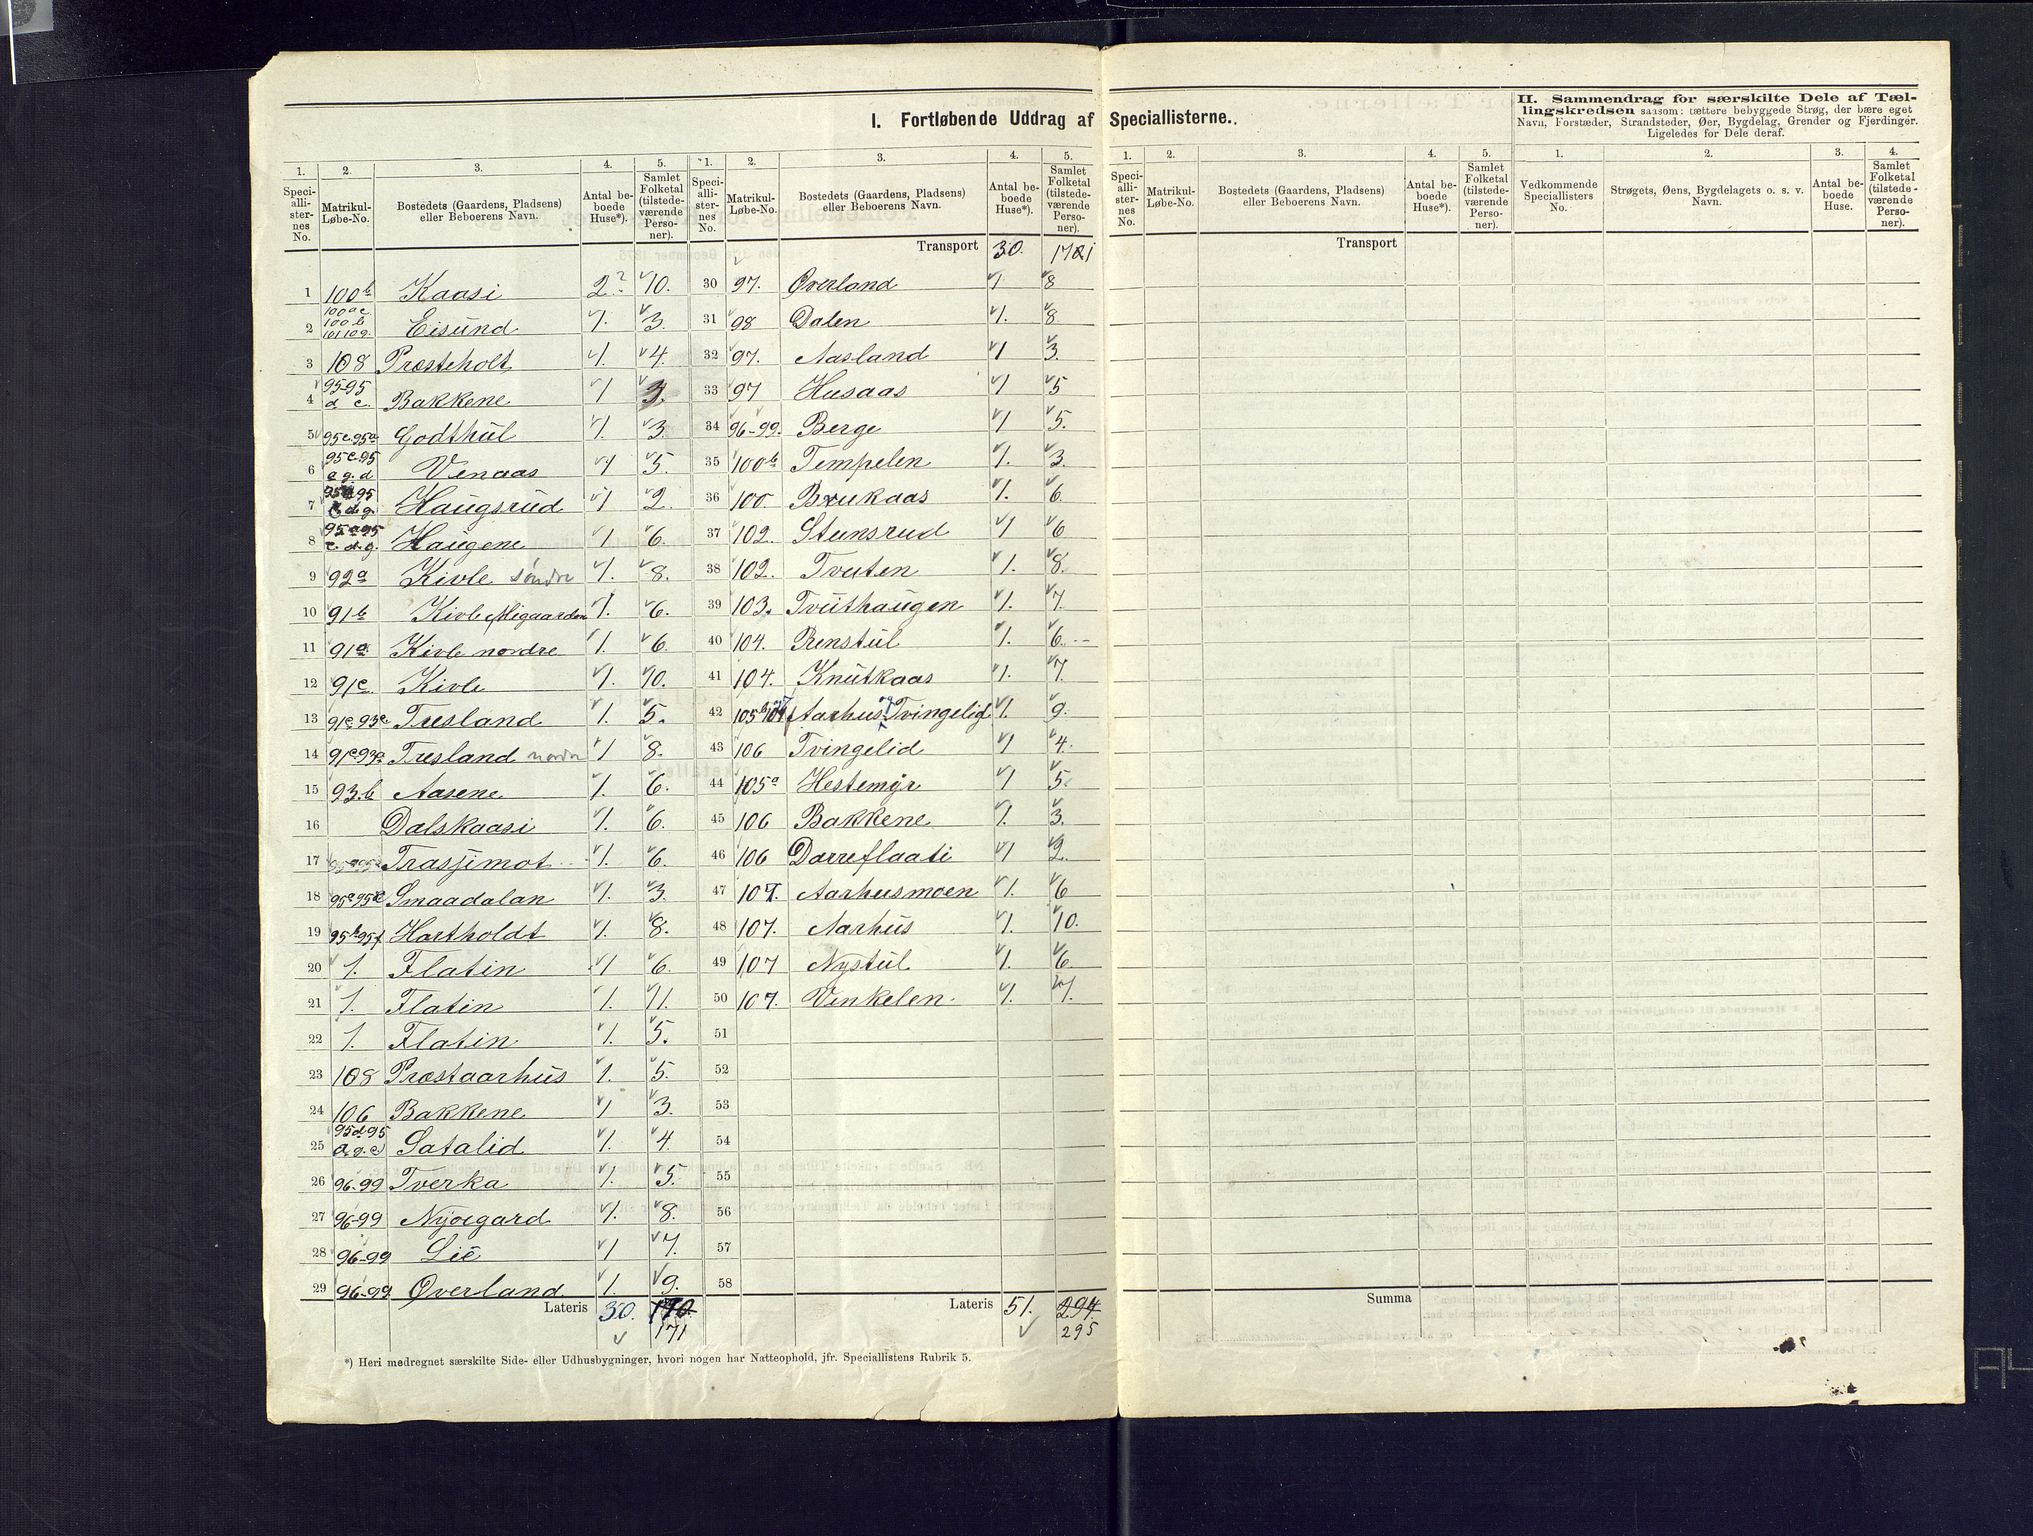 I. Fortløbende Uddrag af Speciallisterne.
II. Sammendrag for særskilte Dele af Tællingskredsen saasom: tættere bebyggede Strøg, der bære eget Navn, Forstæder, Strandsteder, Øer, Bygdelag, Grender og Fjerdinger. Ligeledes for Dele deraf.
1. 2. 3. 4. 5. 1. 2. 3. 4. 5. 1. 2. 3. 4. 5. 1. 2. 3. 4.
Speciallisternes No. Matrikul-Løbe-No. Bostedets (Gaardens, Pladsens) eller Beboerens Navn. Antal beboede Huse*). Samlet Folketal (tilstedeværende Personer).
Speciallisternes No. Matrikul-Løbe-No. Bostedets (Gaardens, Pladsens) eller Beboerens Navn. Antal beboede Huse*). Samlet Folketal (tilstedeværende Personer).
Speciallisternes No. Matrikul-Løbe-No. Bostedets (Gaardens, Pladsens) eller Beboerens Navn. Antal beboede Huse*). Samlet Folketal (tilstedeværende Personer).
Vedkommende Speciallisters No. Strøgets, Øens, Bygdelagets o. s. v. Navn. Antal beboede Huse. Samlet Folketal (tilstedeværende Personer).
1 100b Kaasi 2? 10.
2 Eisund 1. 3.
3 108 Præsteholt 1. 4.
4 95-95 d c. Bakkene 1
5 Godthül 1. 3.
6 95c-95 e g. d Venaas 1 5.
7 Haugsrud 1 2.
8 Haugene 1 6.
9 92a Kivle søndre 1. 8.
10 91b Kivle Migaarden 1. 6.
11 91a Kivle nordre 1. 6.
12 91c. Kivle 1. 10.
13 91c. 93c Tresland 1. 5.
14 91c 93a Tresland nordre 1 8.
15 93.b Aasene 1. 6.
16 Dalskaasi 1. 6.
17 Trasjimot 1. 6.
18 Smaadalan 1. 3.
19 95h 95f Hartholdt 1. 8.
20 1. Flatin 1 6.
21 1. Flatin 1. 11.
22 1. Flatin 1. 5.
23 108 Præstaarhüs 1. 5.
24 106 Bakkene 1 3.
25 95d-95 Satalid 1. 4.
26 96-99 Tverka 1. 5.
27 96-99 Nyøegard 1. 8.
28 96-99 Lie 1 7.
29 96-99 Øverland 1. 9.
Lateris 30. 170.
171
Transport 30. 171
30 97. Øverland 1 8
31 98 Dalen 1. 8.
32 97. Aasland 1 3.
33 97 Husaas 1 5
34 96-99. Berge 1 5.
35 100b Tempelen 1. 3.
36 100. Brukaas 1. 6.
37 102. Stensrud 1 6
38 102. Tveten 1. 8.
39 103. Tvüthaugen 1. 7.
40 104. Renstül 1. 6.
41 104. Knütkaas 1. 7.
42 Aarhus og Tvingelid 1. 9.
43 106 Tvingelid 1 4.
44 105a Hestemyr 1 5.
45 106 Bakkene 1. 3.
46 106 Darreflaati 1 2.
47 107. Aarhusmoen 1. 6
48 107. Aarhüs 1. 10.
49 107 Nystül 1. 6.
50 107. Vinkelen. 1. 7.
51
52
53
54
55
56
57
58
Lateris 51. 294.
295
Transport
Summa
*) Heri medregnet særskilte Side- eller Udhusbygninger, hvori nogen har Natteophold, jfr. Speciallistens Rubrik 5.